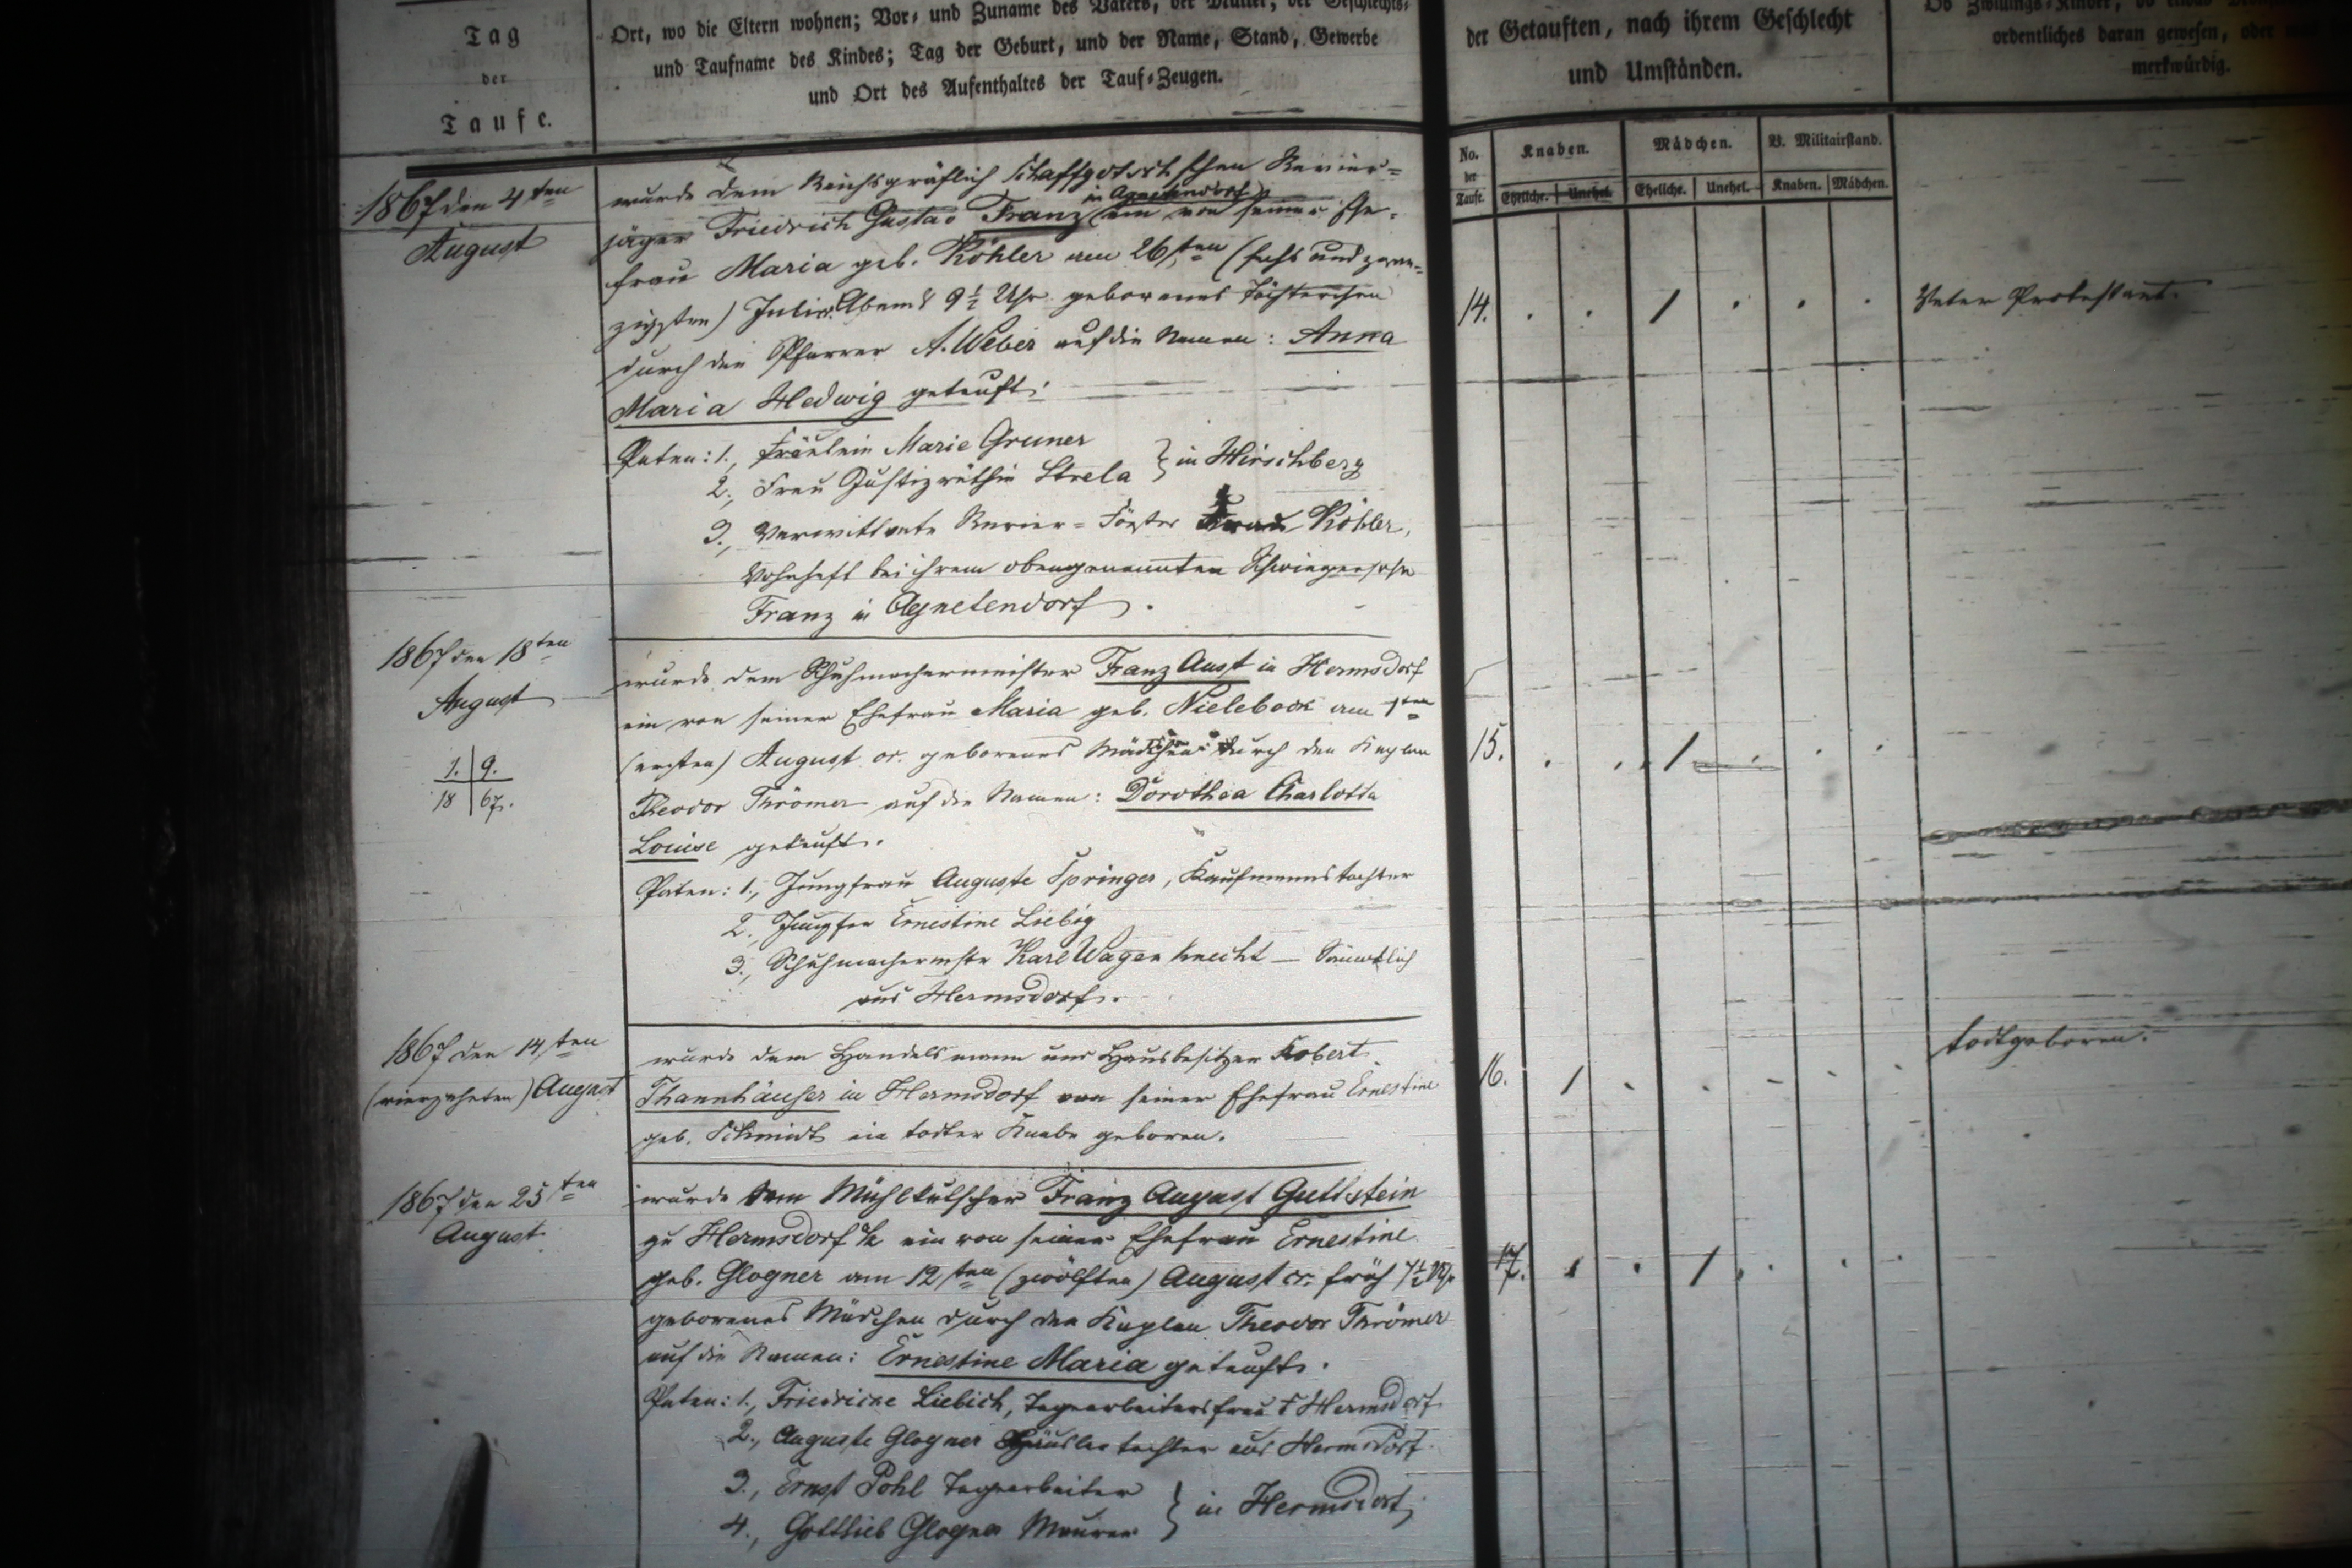 Tag
der
Taufe.
Ort, wo die Eltern wohnen; Vor- und Zuname des Vaters, der Mutter, der Geschlechts-
und Taufname des Kindes; Tag der Geburt, und der Name, Stand, Gewerbe
und Ort des Aufenthaltes der Tauf-Zeugen.
der Getauften, nach ihrem Geschlecht
und Umständen.
Ob Zwillings-Kinder, ob etwas
ordentliches daran gewesen, oder
merkwürdig.
No. der Taufe.
Knaben.
Mädchen.
V. Militairstand.
Eheliche. Unehel. Eheliche. Unehel. Knaben. Mädchen.
1867 den 4ten
August
wurde dem Reichsgräflich Schaffgotsch'schen Revier-
in Agnetendorf
jäger Friedrich Gustav Franz ein von seiner Ehe-
frau Maria geb. Köhler am 26sten (sechs und zwan-
zigsten) Juli Abends 9½ Uhr geborenes Töchterchen
durch den Pfarrer A. Weber auf die Namen: Anna
Maria Hedwig getauft.
Paten: 1., Fräulein Marie Gruner
2., Frau Justizräthin Strela } in Hirschberg
3., Verwittwete Revier-Förster Frau Köhler,
Wohnhaft bei ihrem obengenannten Schwiegersohn
Franz in Agnetendorf.
14. 1
Vater Protestant.
1867 den 18ten
August
1. 9.
18 67.
wurde dem Schuhmachermeister Franz Aust in Hermsdorf
ein von seiner Ehefrau Maria geb. Nielebock am 1ten
(ersten) August cr. geborenes Mädchen durch den Kaplan
Theodor Thrömer auf die Namen: Dorothea Charlotta
Louise getauft.
Paten: 1., Jungfrau Auguste Springer, Kaufmannstochter
2., Jungfer Ernestine Liebig
3., Schuhmachermstr Karl Wagenknecht — Sämmtlich
aus Hermsdorf.
15. 1
1867 den 14ten
(vierzehnten) August
wurde dem Handelsmann und Hausbesitzer Robert
Thannhäuser in Hermsdorf von seiner Ehefrau Ernestine
geb. Schmidt ein todter Knabe geboren.
16. 1
todtgeboren.
1867 den 25ten
August
wurde dem Mühlkutscher Franz August Gullstein
zu Hermsdorf u/K ein von seiner Ehefrau Ernestine
geb. Glogner am 12ten (zwölften) August cr. früh 7½ Uhr
geborenes Mädchen durch den Kaplan Theodor Thrömer
auf die Namen: Ernestine Maria getauft.
Paten: 1., Friedricke Liebich, Tagearbeitersfrau Hermsdorf
2., Auguste Glogner Häuslertochter aus Hermsdorf.
3., Ernst Pohl Tagearbeiter
4., Gottlieb Glogner Maurer } in Hermsdorf
17. 1